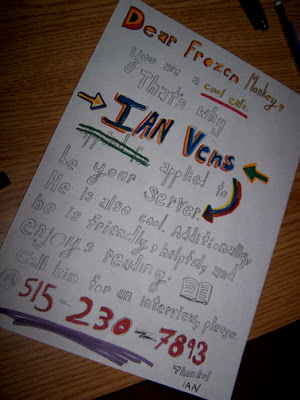 Dear Frozen Monkey,
you are a cool cafe.
That's why
IAN Vens
applied to
be your server.
He is also cool. Additionally,
he is friendly, helpful, and
enjoys reading.
Call him for an interview, please
@ 515-230-7893
Thanks!
IAN